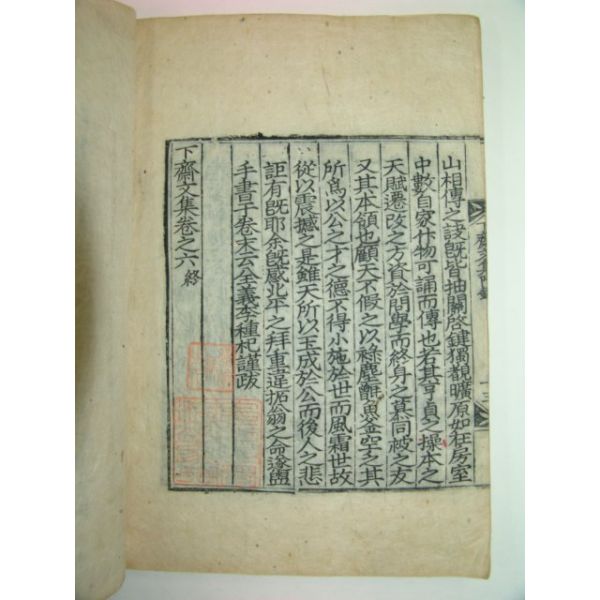 山相傳之諺旣皆抽關啓鍵獨覩曠原如在房室
中數自家什物可誦而傳也若其亨貞之操本之
天賦遷改之方資於問學而終身之慕同被之友
又其本領也顧天不假之以祿塵甑魚釜空乏其
所爲以公之才之德不得小施於世而風霜世故
從以震撼之是雖天所以玉成於公而後人之悲
詎有旣耶余旣感北平之拜重違翁之命遂盥
手書于卷末云全義李種杞謹跋
下齋文集卷之六 終